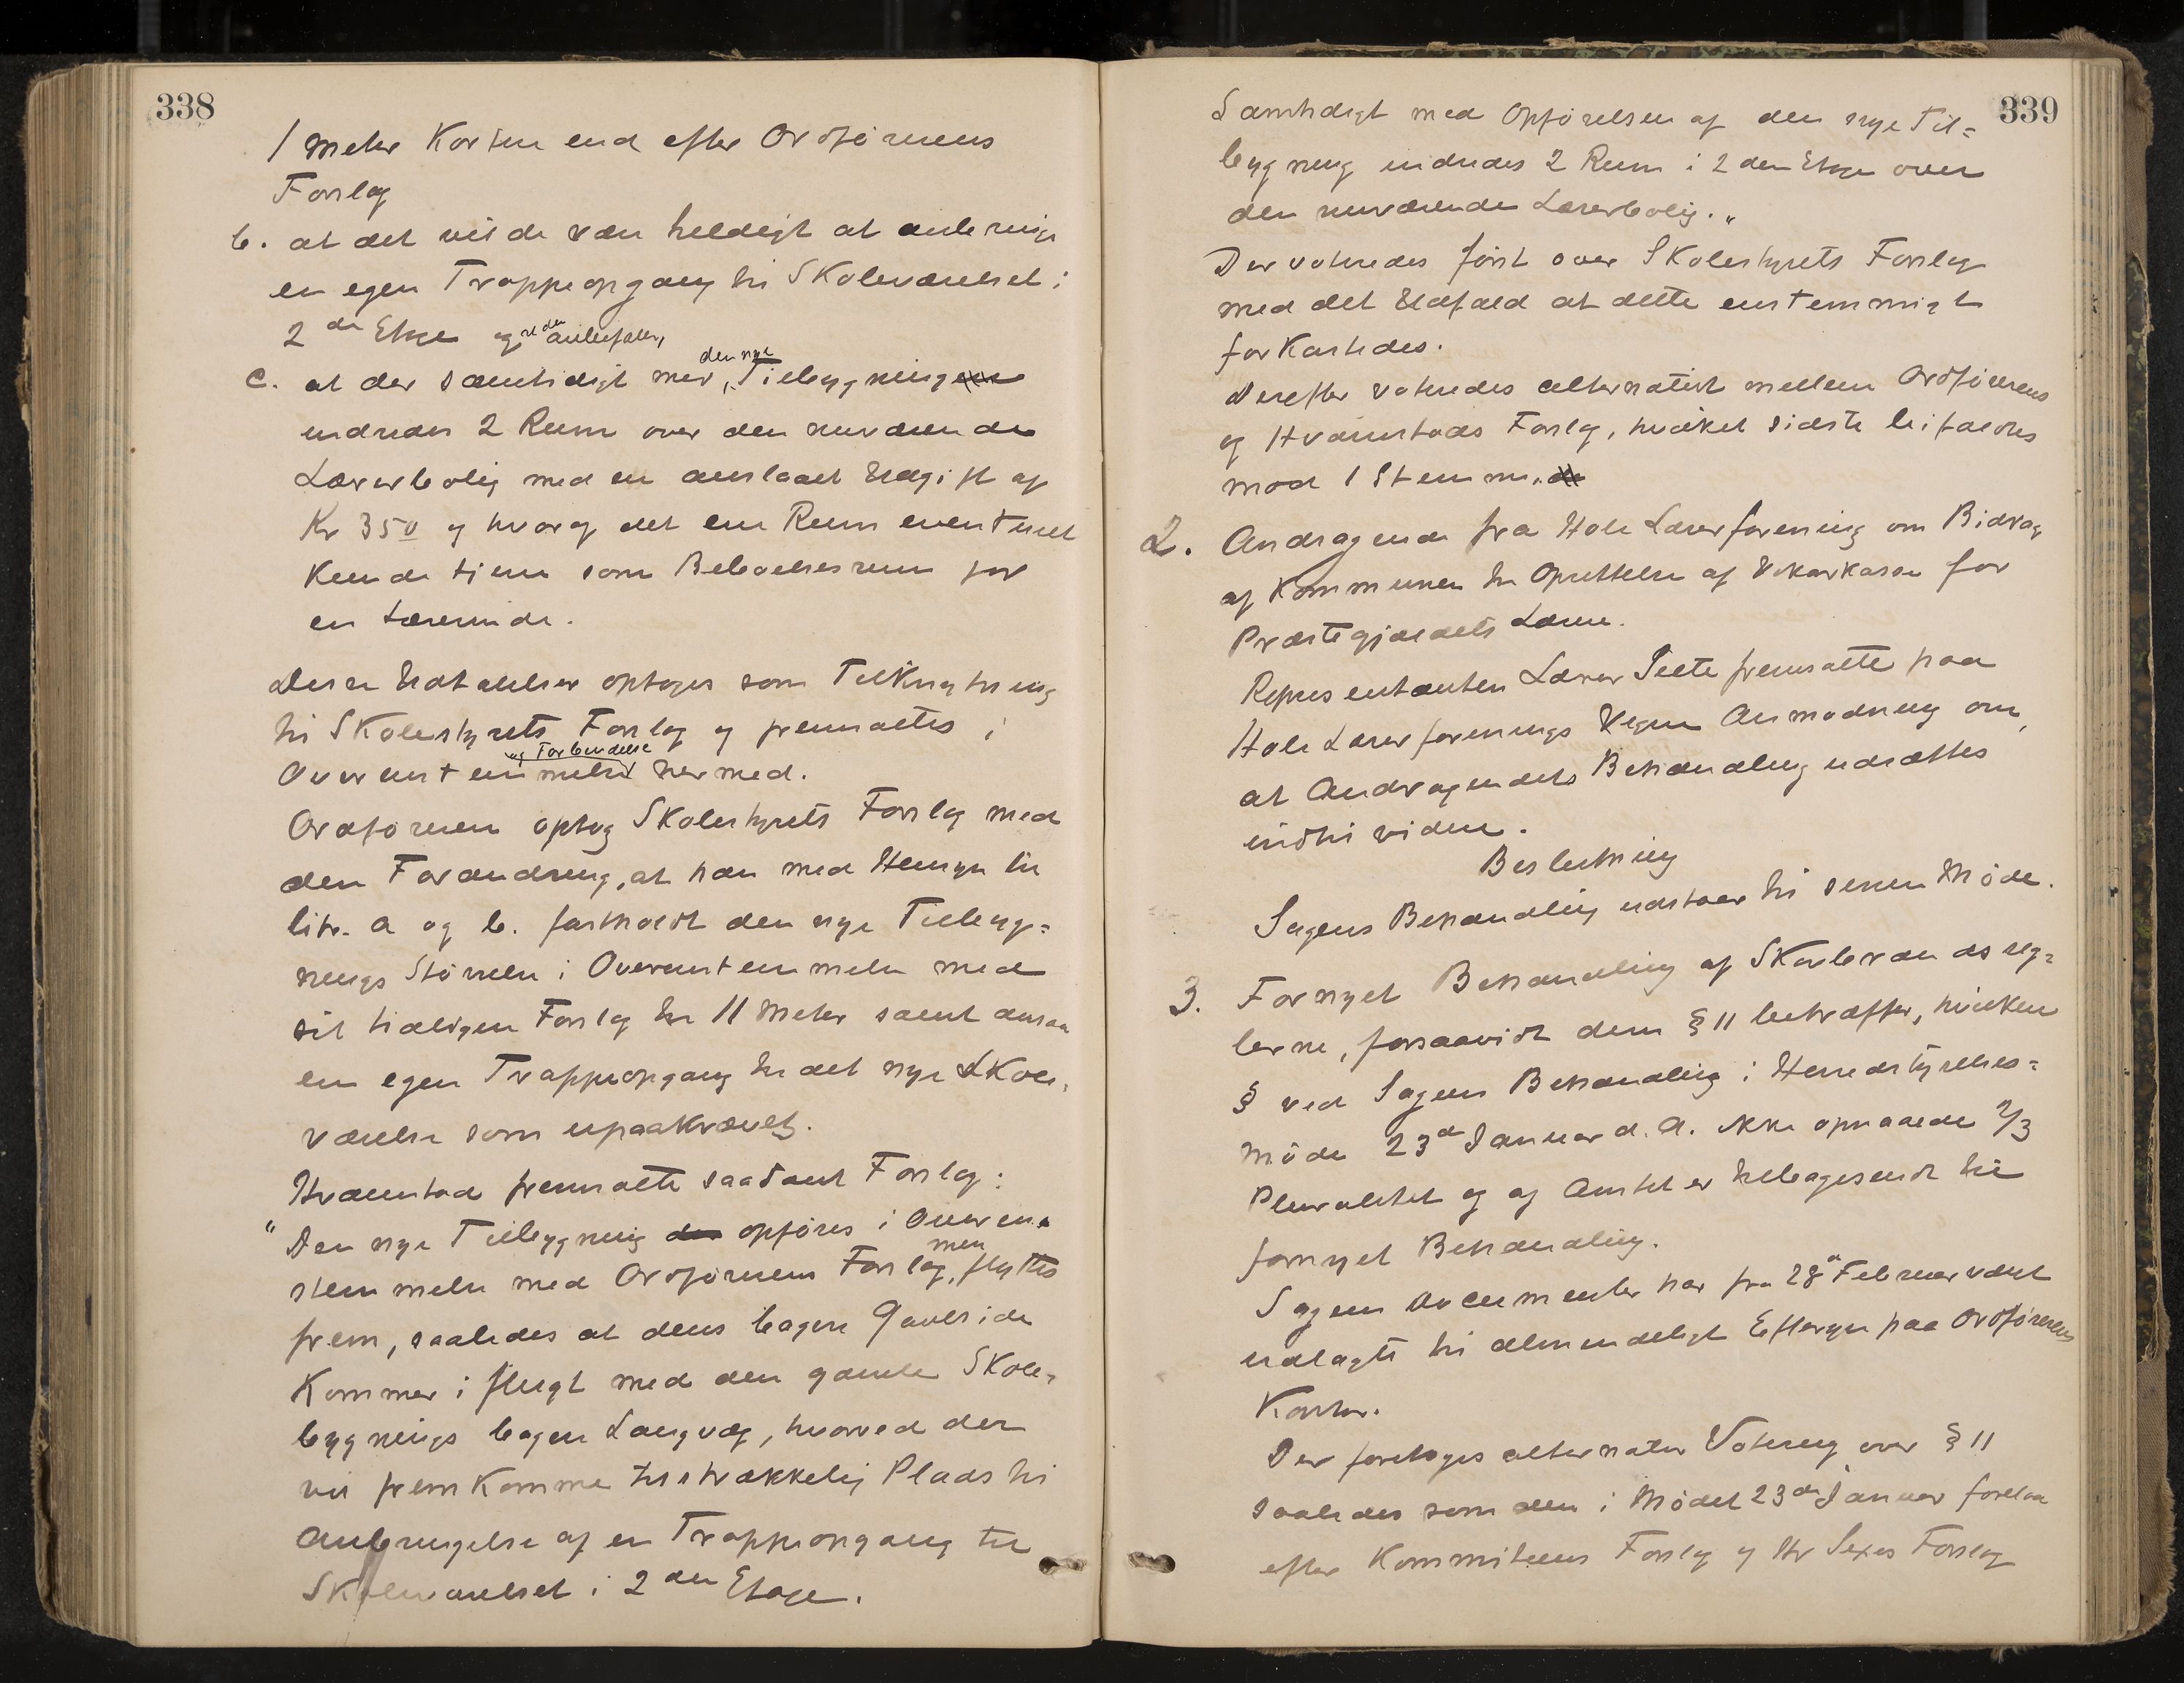 338
1 Meter Kortere end efter Ordförerens
Forslag
b. at det vilde være heldigt at anbringe
en egen Trappeopgang til Skoleværelset i
2den Etage og anbefaler,
c. at der samtidigt med den nye Tilbygning
indredes 2 Rum over den nuværende
Lærerbolig med en anslaaet Udgift af
Kr 350 og hvoraf det ene Rum eventuelt
Kunde tjene som Beboelsesrum for
en Lærerinde.
Disse Udtalelser optoges som Tilknytning
til Skolestyrets Forslag og fremsattes i
Overenstemmelse og Forbindelse hermed.
Ordföreren optog Skolestyrets Forslag med
den Forandring, at han med Hensyn til
litr. a og b. fastholdt den nye Tilbyg=
nings Störrelse i Overenstemmelse med
sit tidligere Forslag til 11 Meter samt ansaa
en egen Trappeopgang til det nye Skole=
værelse som upaakrævet.
Hvamstad fremsatte saadant Forslag:
"Den nye Tilbygning opföres i Overen=
stemmelse med Ordförerens Forslag, men flyttes
frem, saaledes at dens bagre Gavlside
Kommer i flugt med den gamle Skole=
bygnings bagre Langvæg, hvorved der
vil fremkomme tilstrækkelig Plads til
Anbringelse af en Trappeopgang til
Skoleværelset i 2den Etage.
339
Samtidigt med Opförelsen af den nye Til=
bygning indredes 2 Rum i 2den Etage over
den nuværende Lærerbolig."
Der voteredes först over Skolestyrets Forslag
med det Udfald at dette enstemmigt
forkastedes.
Derefter voteredes alternativt mellem Ordförerens
og Hvamstads Forslag, hvilket sidste bifaldtes
mod 1 Stemme.
2. Andragende fra Hole Lærerforening om Bidrag
af Kommunen til Oprettelse af Vikarkasse for
Præstegjældets Lærere.
Representanten Lærer fremsatte paa
Hole Lærerforenings Vegne Anmodning om,
at Andragendets Behandling udsættes
indtil videre.
Beslutning
Sagens Behandling udstaar til senere Möde.
3. Fornyet Behandling af Skovbrandsreg=
lerne, forsaavidt dem § 11 betræffer, hvilken
§ ved Sagens Behandling i Herredstyrelses=
möde 23de Januar d. A. ikke opnaaede 2/3
Pluralitet og af Amtet er tilbagesendt til
fornyet Behandling.
Sagens Documenter har fra 28de Februar været
udlagte til almindeligt Eftersyn paa Ordförerens
Kontor.
Der foretoges alternativ Votering over § 11
saaledes som den i Mödet 23de Januar forelaa
efter Kommiteens Forslag og Hr Forslag